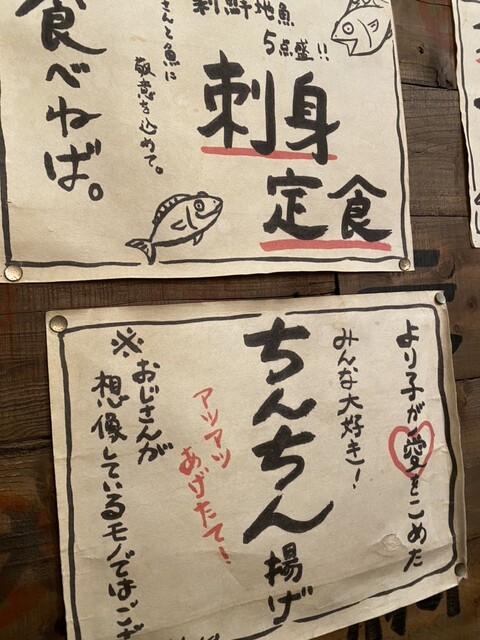 新鮮地魚
5点盛!!
刺身
定食
さんと魚に
敬意を込めて。
食べねば。
より子が愛をこめた
みんな大好き!
ちんちん揚げ
アツアツ
あげたて!
※おじさんが
想像しているモノではござ